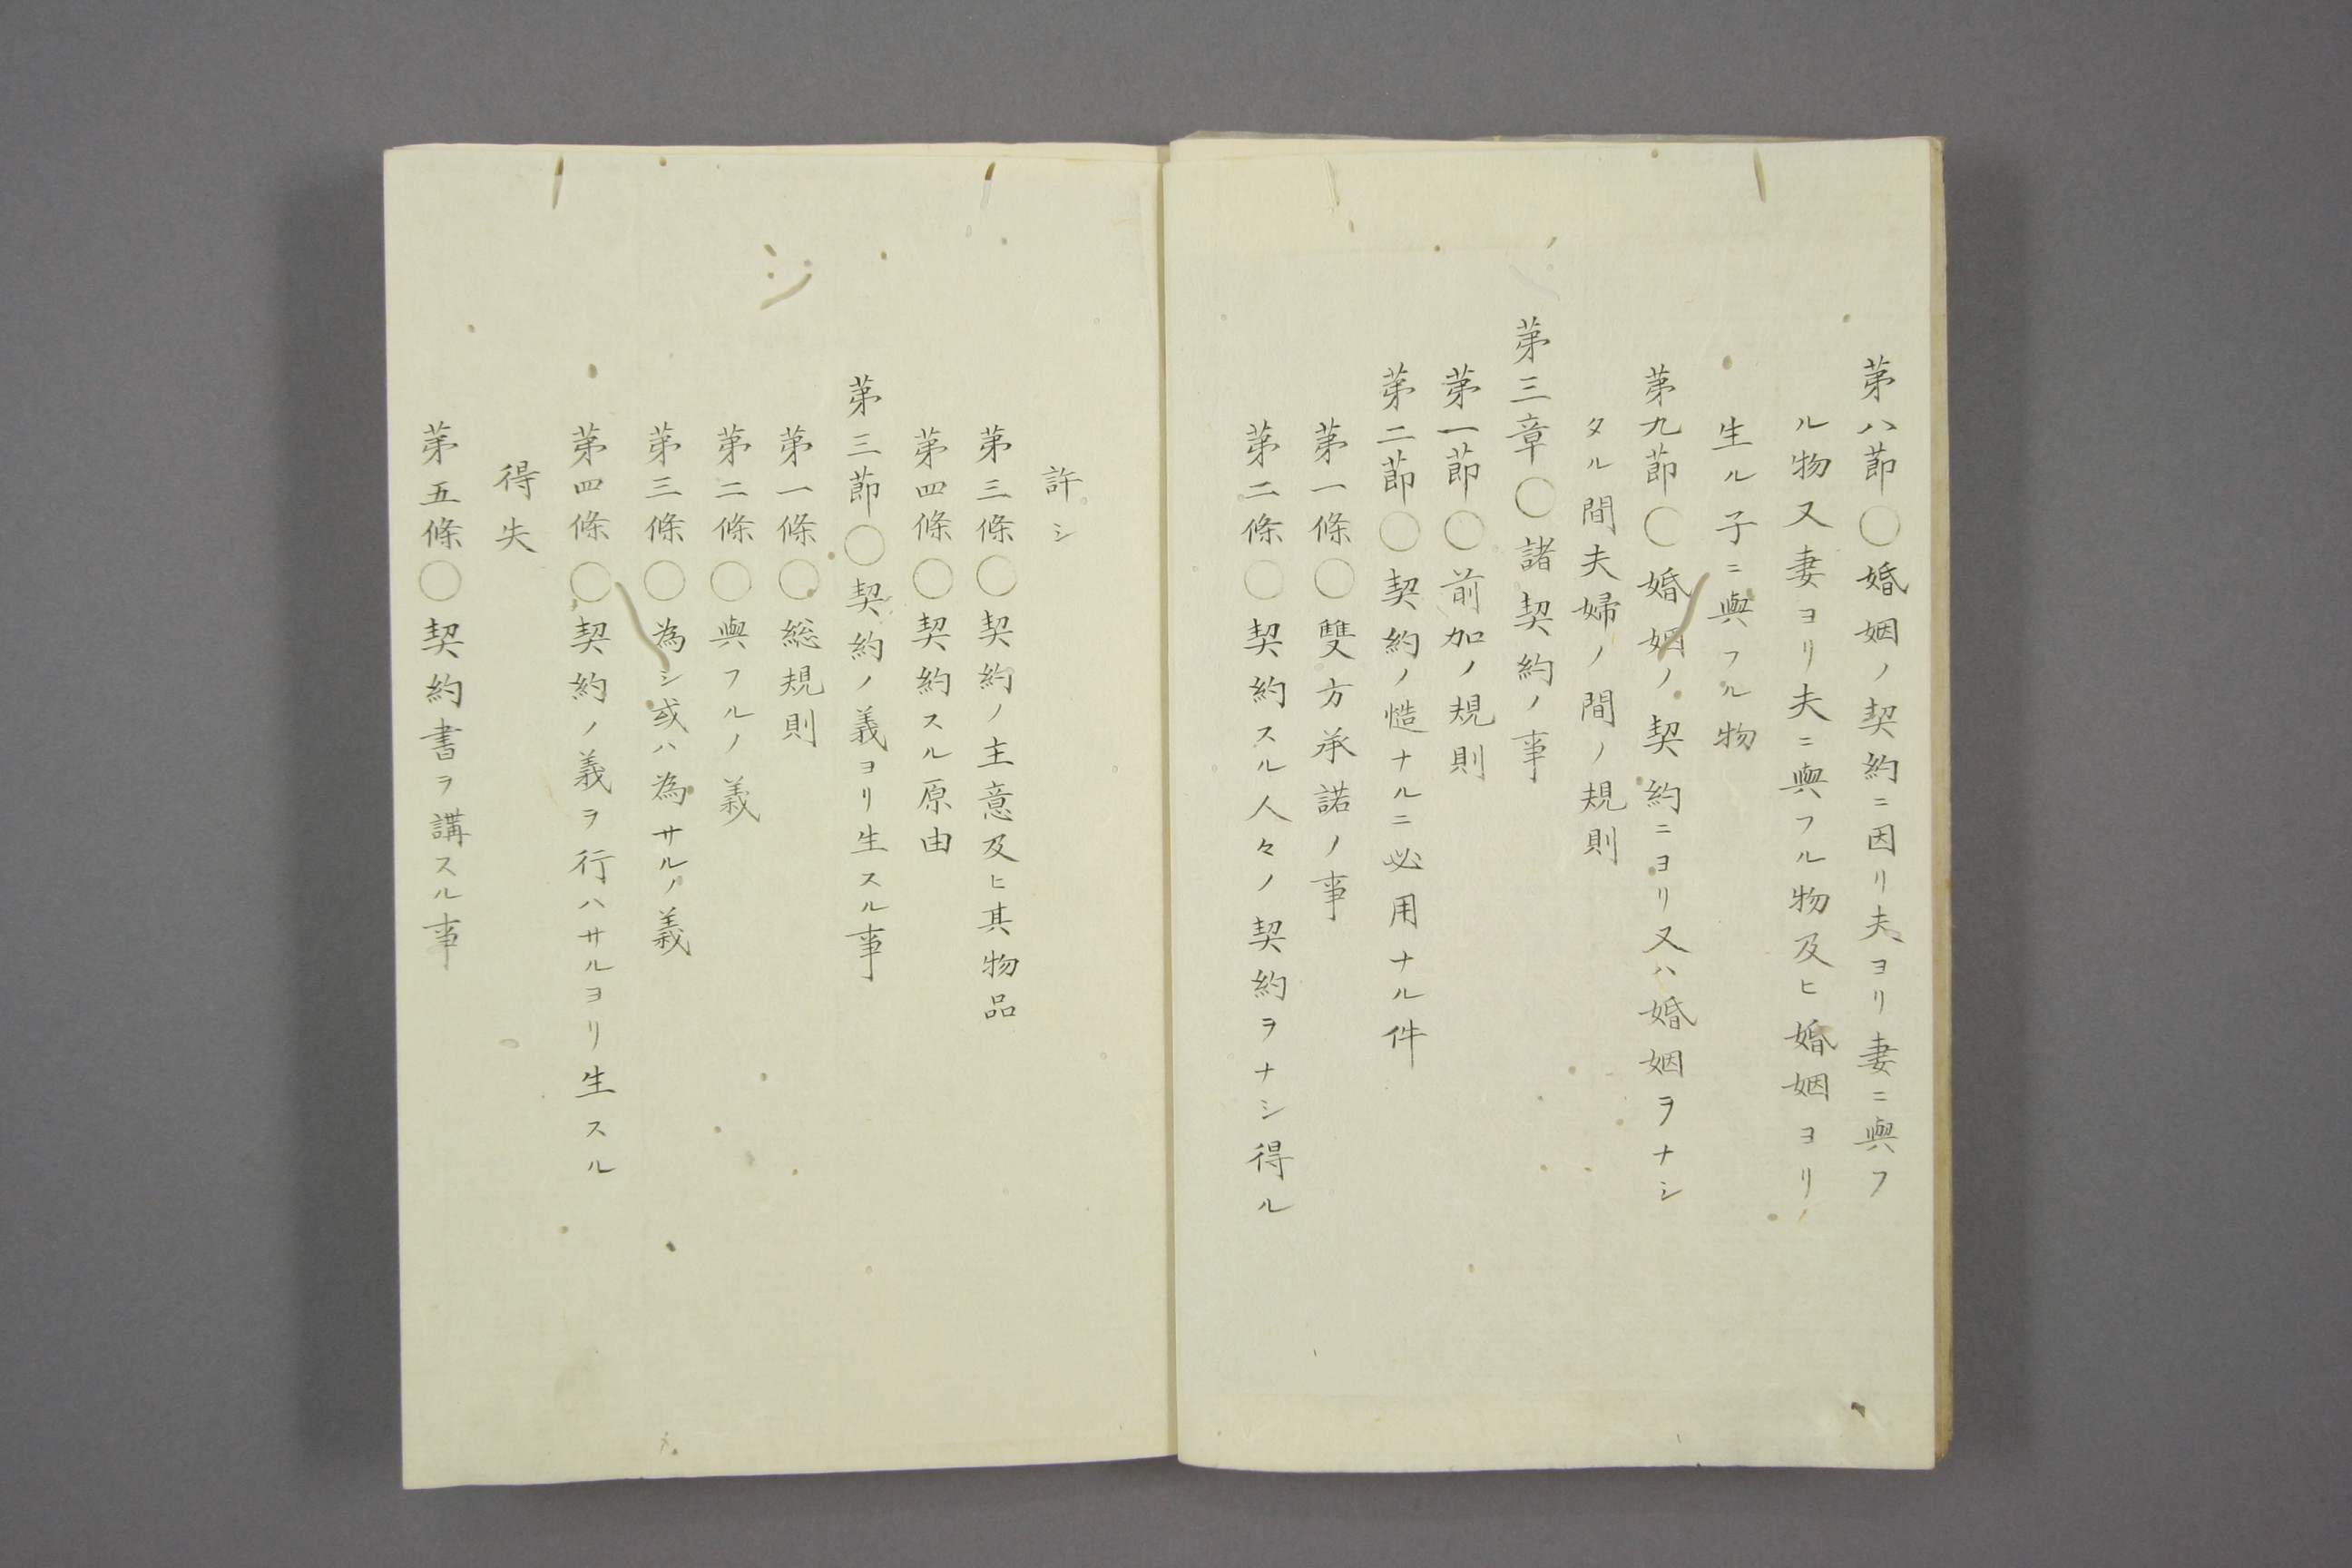 第八節〇婚姻ノ契約ニ因リ夫ヨリ妻ニ與フ
ル物又妻ヨリ夫ニ與フル物及ヒ婚姻ヨリ
生ル子ニ與フル物
第九節〇婚姻ノ契約ニヨリ又ハ婚姻ヲナシ
タル間夫婦ノ間ノ規則
第三章〇諸契約ノ事
第一節〇前加ノ規則
第二節〇契約ノ慥ナルニ必用ナル件
第一條〇雙方承諾ノ事
第二條〇契約スル人々ノ契約ヲナシ得ル
許シ
第三條〇契約ノ主意及ヒ其物品
第四條〇契約スル原由
第三節〇契約ノ義ヨリ生スル事
第一條〇総規則
第二條〇與フルノ義
第三條〇為シ或ハ為サルノ義
第四條〇契約ノ義ヲ行ハサルヨリ生スル
得失
第五條〇契約書ヲ講スル事